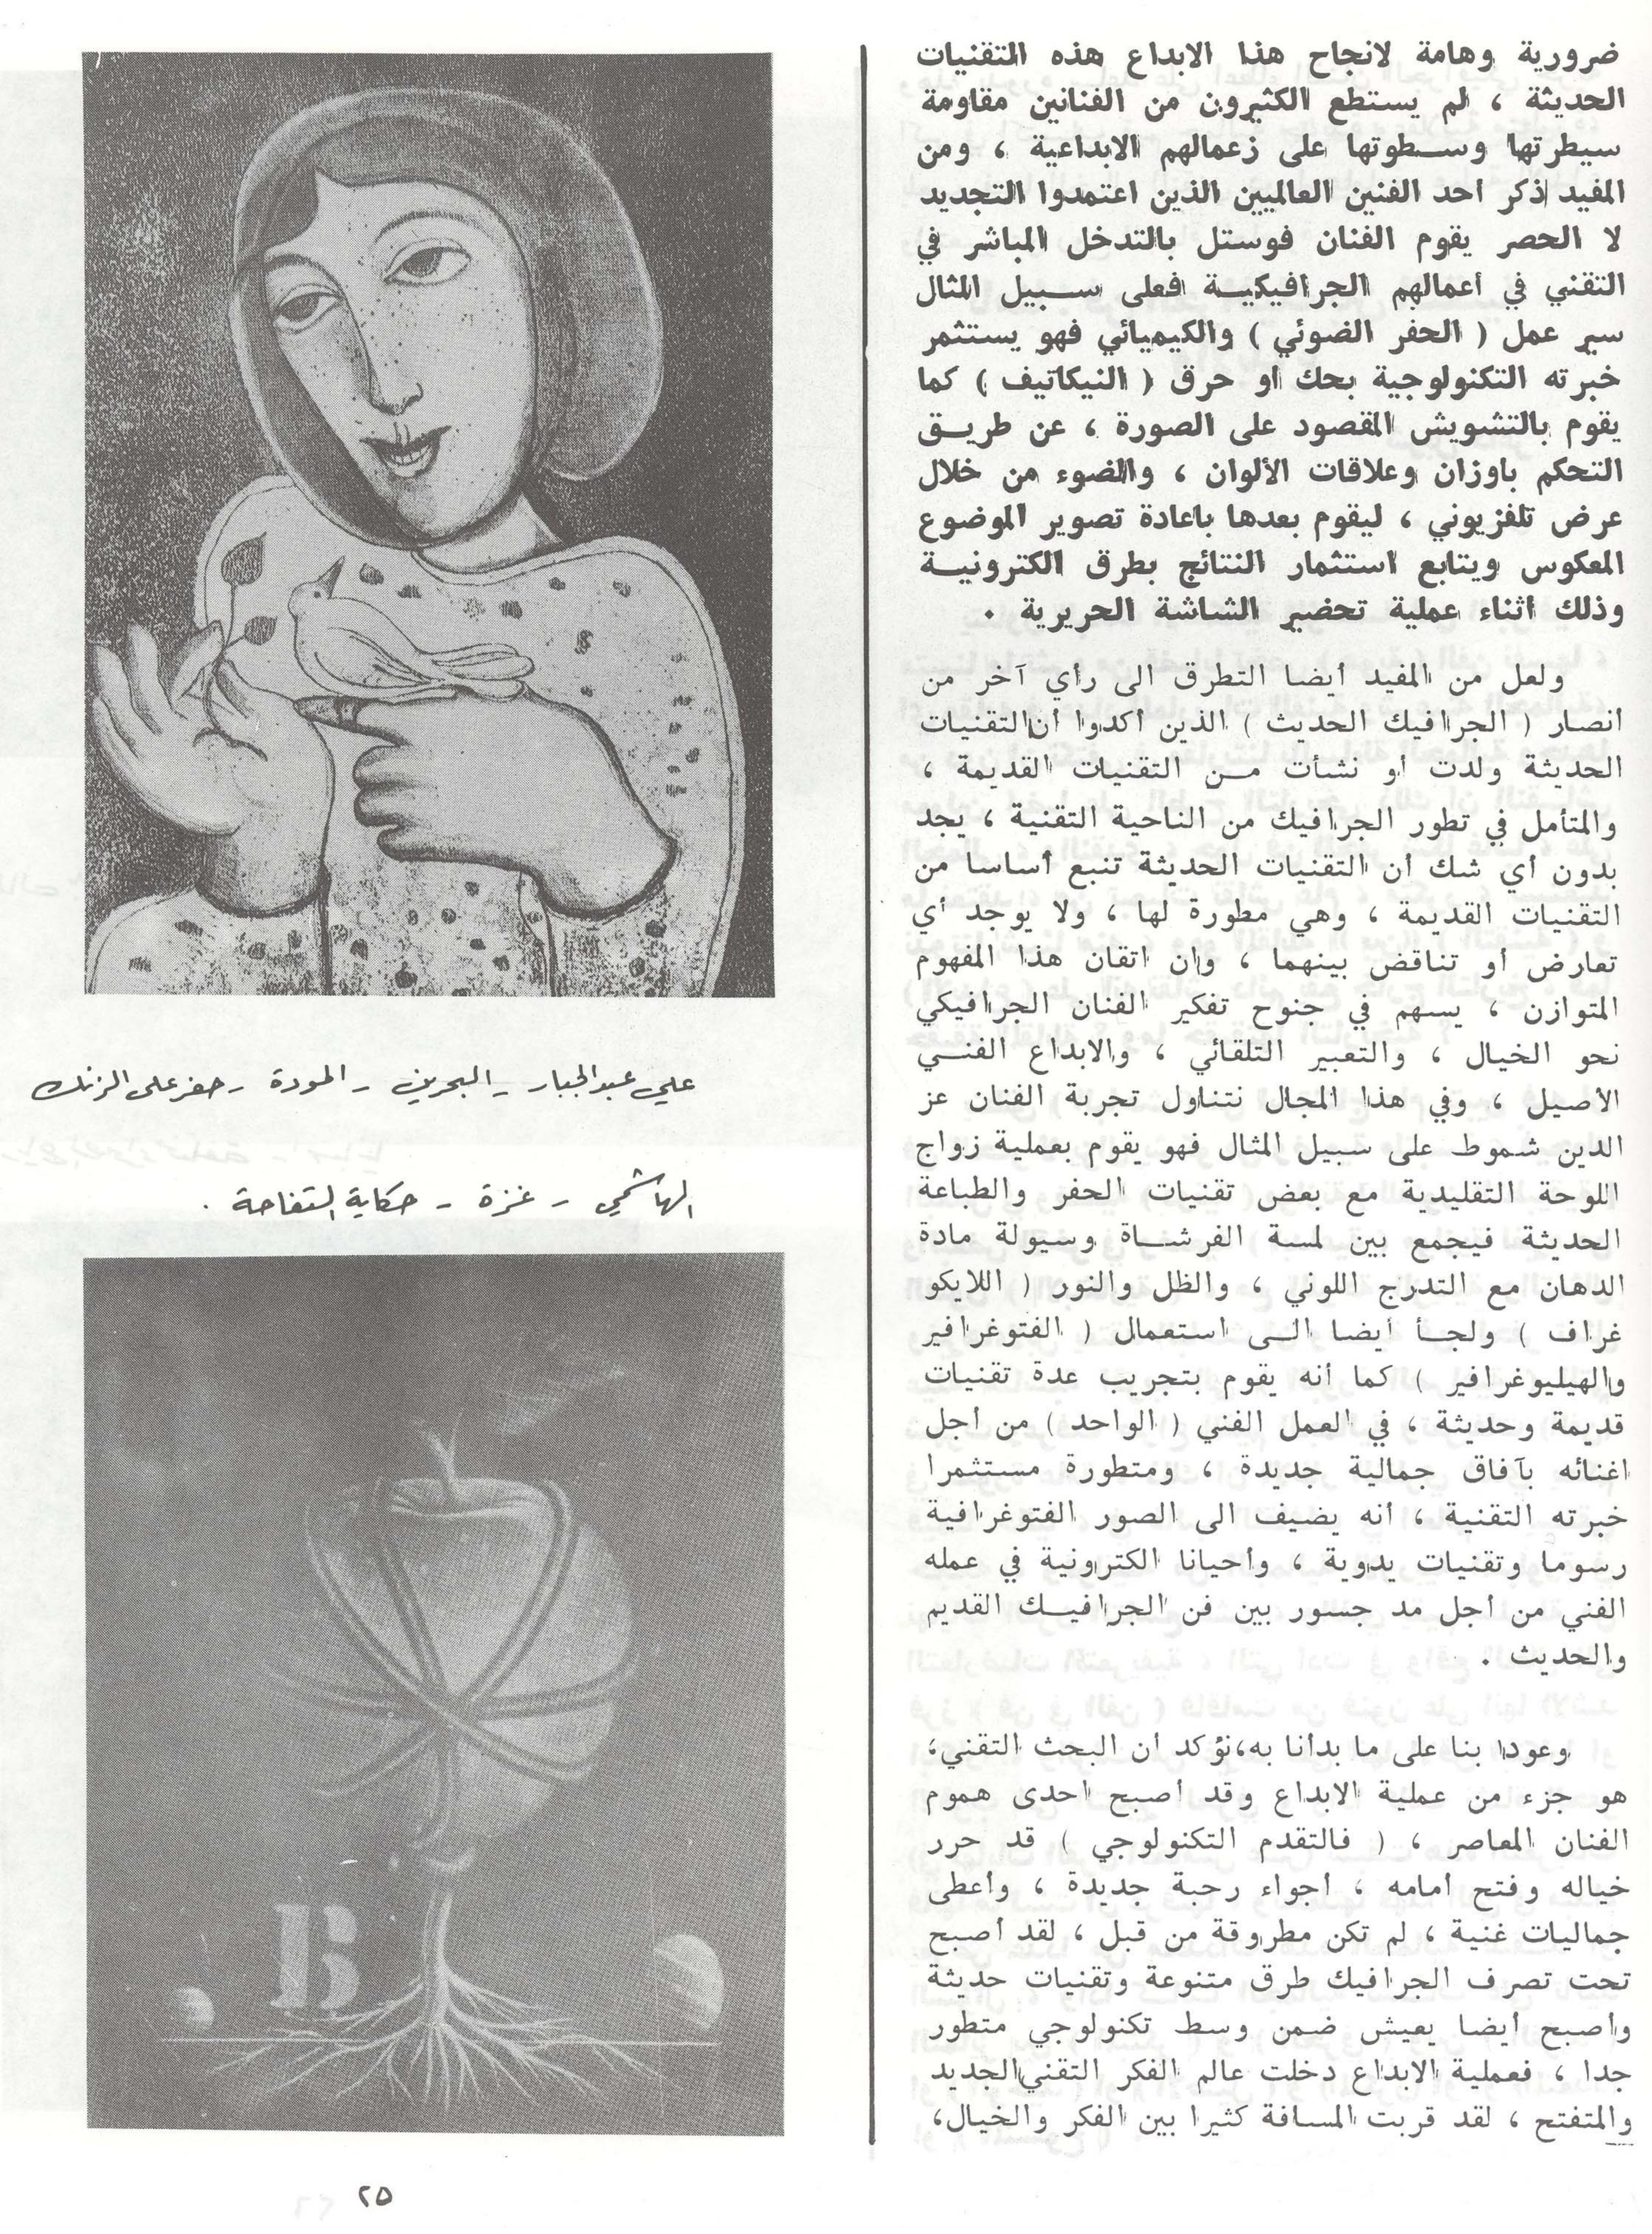 ضرورية وهامة لانجاح هذا الابداع هذه التقنيات
الحديثة ، لم يستطع الكثيرون من الفنانين مقاومة
سيطرتها وسطوتها على زعمالهم الابداعية ، ومن
المفيد اذكر احد الفنين العالميين الذين اعتمدوا التجديد
لا الحصر يقوم الفنان فوستل بالتدخل المباشر في
التقني في أعمالهم الجرافيكية فعلى سبيل المثال
سير عمل ( الحفر الضوئي ) والكيميائي فهو يستثمر
خبرته التكنولوجية بحك او حرق ( النيكاتيف ) كما
يقوم بالتشويش المقصود على الصورة ، عن طريق
التحكم باوزان وعلاقات الألوان ، والضوء من خلال
عرض تلفزيوني ، ليقوم بعدها باعادة تصوير الموضوع
المعكوس ويتابع استثمار النتائج بطرق الكترونية
وذلك اثناء عملية تحضير الشاشة الحريرية .
ولعل من المفيد أيضا التطرق الى رأي آخر من
أنصار ( الجرافيك الحديث ) الذين أكدوا أن التقنيات
الحديثة ولدت أو نشأت من التقنيات القديمة ،
والمتأمل في تطور الجرافيك من الناحية التقنية ، يجد
بدون أي شك أن التقنيات الحديثة تنبع أساسا من
التقنيات القديمة ، وهي مطورة لها ، ولا يوجد أي
تعارض أو تناقض بينهما ، وان اتقان هذا المفهوم
المتوازن ، يسهم في جنوح تفكير الفنان الجرافيكي
نحو الخيال ، والتعبير التلقائي ، والابداع الفني
الأصيل ، وفي هذا المجال نتناول تجربة الفنان عز
الدين شموط على سبيل المثال فهو يقوم بعملية زواج
اللوحة التقليدية مع بعض تقنيات الحفر والطباعة
الحديثة فيجمع بين لمسة الفرشاة وسيولة مادة
الدهان مع التدرج اللوني ، والظل والنور ( اللايكو
غراف ) ولجأ أيضا الى استعمال ( الفتوغرافير
والهيليوغرافير ) كما أنه يقوم بتجريب عدة تقنيات
قديمة وحديثة ، في العمل الفني ( الواحد ) من أجل
اغنائه بآفاق جمالية جديدة ، ومتطورة مستثمرا
خبرته التقنية ، أنه يضيف الى الصور الفتوغرافية
رسوما وتقنيات يدوية ، وأحيانا الكترونية في عمله
الفني من أجل مد جسور بين فن الجرافيك القديم
والحديث .
وعودا بنا على ما بدأنا به، نؤكد أن البحث التقني،
هو جزء من عملية الابداع وقد أصبح احدى هموم
الفنان المعاصر ، ( فالتقدم التكنولوجي ) قد حرر
خياله وفتح أمامه ، أجواء رحبة جديدة ، وأعطى
جماليات غنية ، لم تكن مطروقة من قبل ، لقد أصبح
تحت تصرف الجرافيك طرق متنوعة وتقنيات حديثة
وأصبح أيضا يعيش ضمن وسط تكنولوجي متطور
جدا ، فعملية الابداع دخلت عالم الفكر التقني الجديد
والمتفتح ، لقد قربت المسافة كثيرا بين الفكر والخيال،
علي عبد الجبار - البحرين - المودة - حفر على الزنك
الهاشمي - غزة - حكاية التفاحة .
B
٢٥